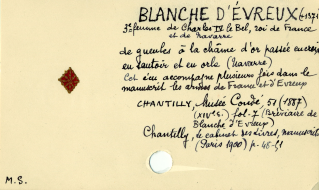 BLANCHE D'ÉVREUX (+1371)
3e femme de Charles IV le Bel, roi de France
et de Navarre
de gueules à la chaîne d'or passée en croix
en sautoir et en orle (Navarre)
Cet écu accompagne plusieurs fois dans le
manuscrit les armes de France et d'Evreux
CHANTILLY, Musée Condé, 51 (1887)
(XIVe s.) fol. 7 (Bréviaire de
Blanche d'Evreux)
Chantilly, le cabinet des Livres, manuscrits
(Paris 1900) p. 48-51
M.S.